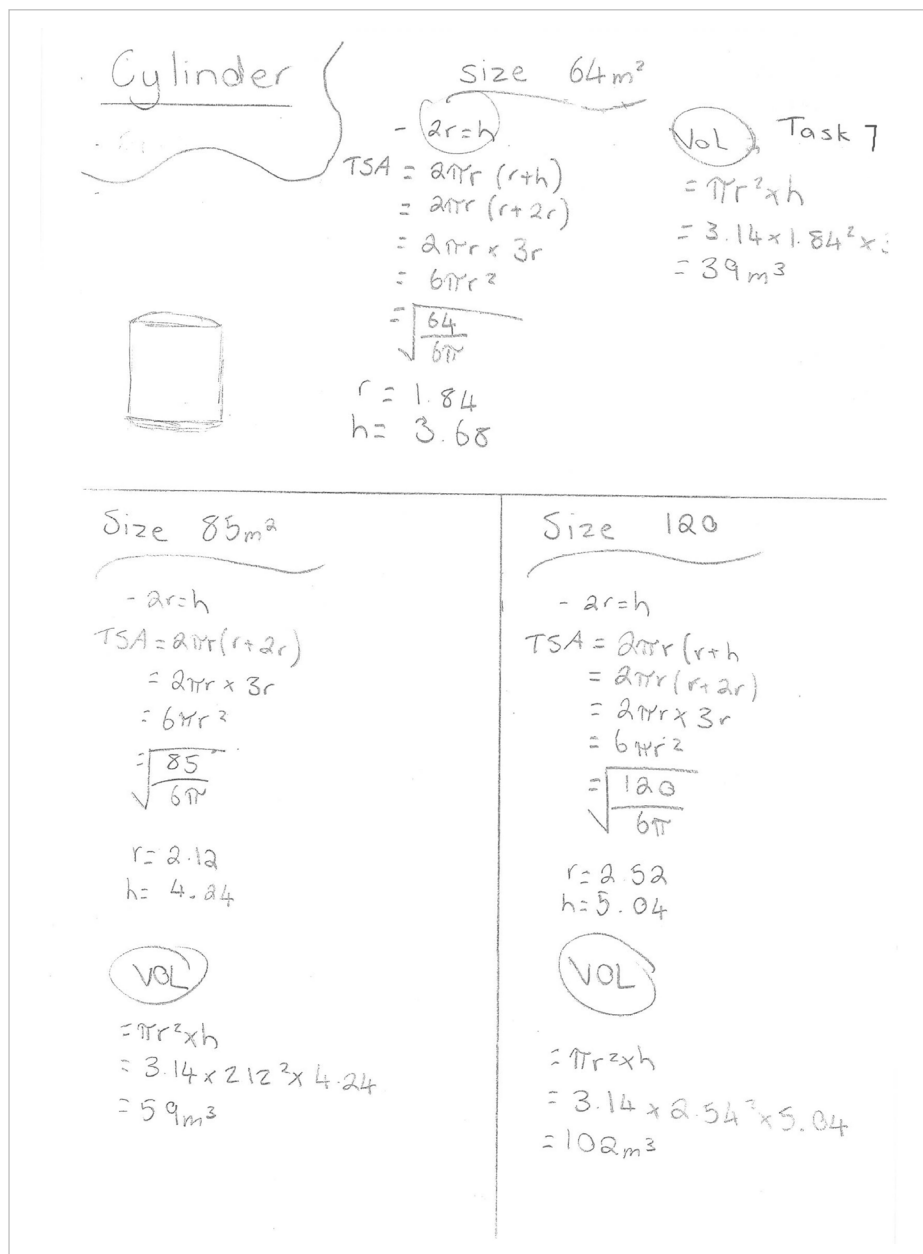 Cylinder
size 64m²
- 2r=h
TSA = 2πr (r+h)
= 2πr (r+2r)
= 2πr × 3r
= 6πr²
= √(64/6π)
r = 1.84
h = 3.68
Task 7
Vol
= πr²×h
= 3.14×1.84²×
= 39m³
Size 85m²
- 2r=h
TSA = 2πr(r+2r)
= 2πr × 3r
= 6πr²
= √(85/6π)
r= 2.12
h= 4.24
VOL
= πr²×h
= 3.14×212²×4.24
= 59m³
Size 120
- 2r=h
TSA = 2πr(r+h
= 2πr(r+2r)
= 2πr×3r
= 6πr²
= √(120/6π)
r=2.52
h=5.04
VOL
= πr²×h
= 3.14×2.54²×5.04
= 102m³